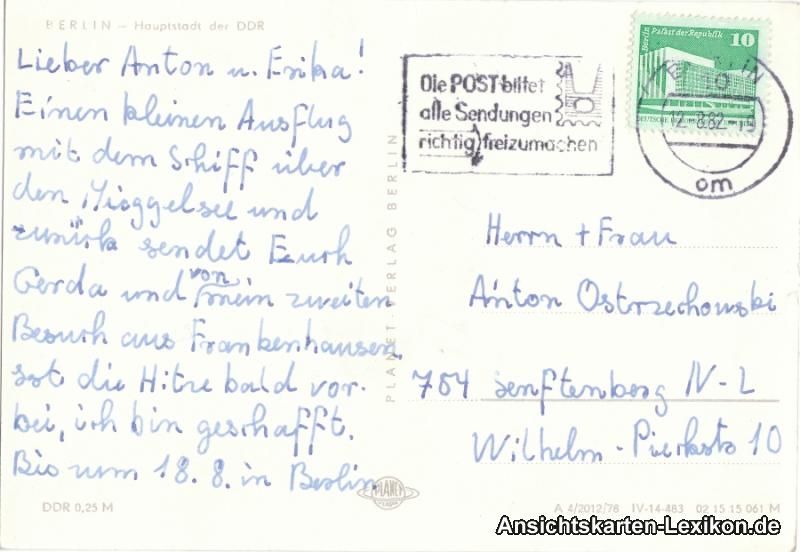 BERLIN – Hauptstadt der DDR
Lieber Anton u. Erika!
Einen kleinen Ausflug
mit dem Schiff über
den Müggelsee und
zurück sendet Euch
Gerda und von mein zweiten
Besuch aus Frankenhausen
ist die Hitze bald vor-
bei, ich bin geschafft.
Bis zum 18.8. in Berlin
DDR 0,25 M
PLANET-VERLAG BERLIN
PLANET
Die POST bittet
alle Sendungen
richtig freizumachen
Berlin Palast der Republik
10
12.-8.82.-19
om
Herrn + Frau
Anton Ostrzechowski
7** Senftenberg IV-2
Wilhelm-Pieckstr 10
A 4/2012/78 IV-14-483 02 15 15 061 M
Ansichtskarten-Lexikon.de